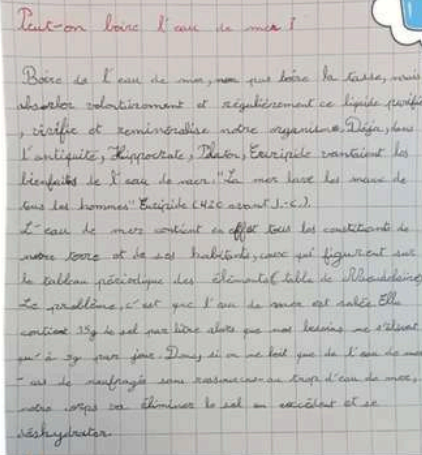 Peut-on boire l'eau de mer ?
Boire de l'eau de mer, non pas boire la tasse, mais
absorber volontairement et régulièrement ce liquide purifie
, vivifie et reminéralise notre organisme. Déjà, dans
l'antiquité, Hippocrate, Platon, Euripide vantaient les
bienfaits de l'eau de mer. "La mer lave les maux de
tous les hommes" Euripide (412 avant J.-C.).
L'eau de mer contient en effet tous les constituants de
notre terre et de ses habitants, ceux qui figurent sur
le tableau périodique des éléments (table de
Le problème, c'est que l'eau de mer est salée. Elle
contient 35g de sel par litre alors que nos besoins ne s'élèvent
qu'à 5g par jour. Donc, si on ne boit que de l'eau de mer
- cas de naufragés sans ressources - ou trop d'eau de mer,
notre corps va éliminer le sel en excédent et se
déshydrater.